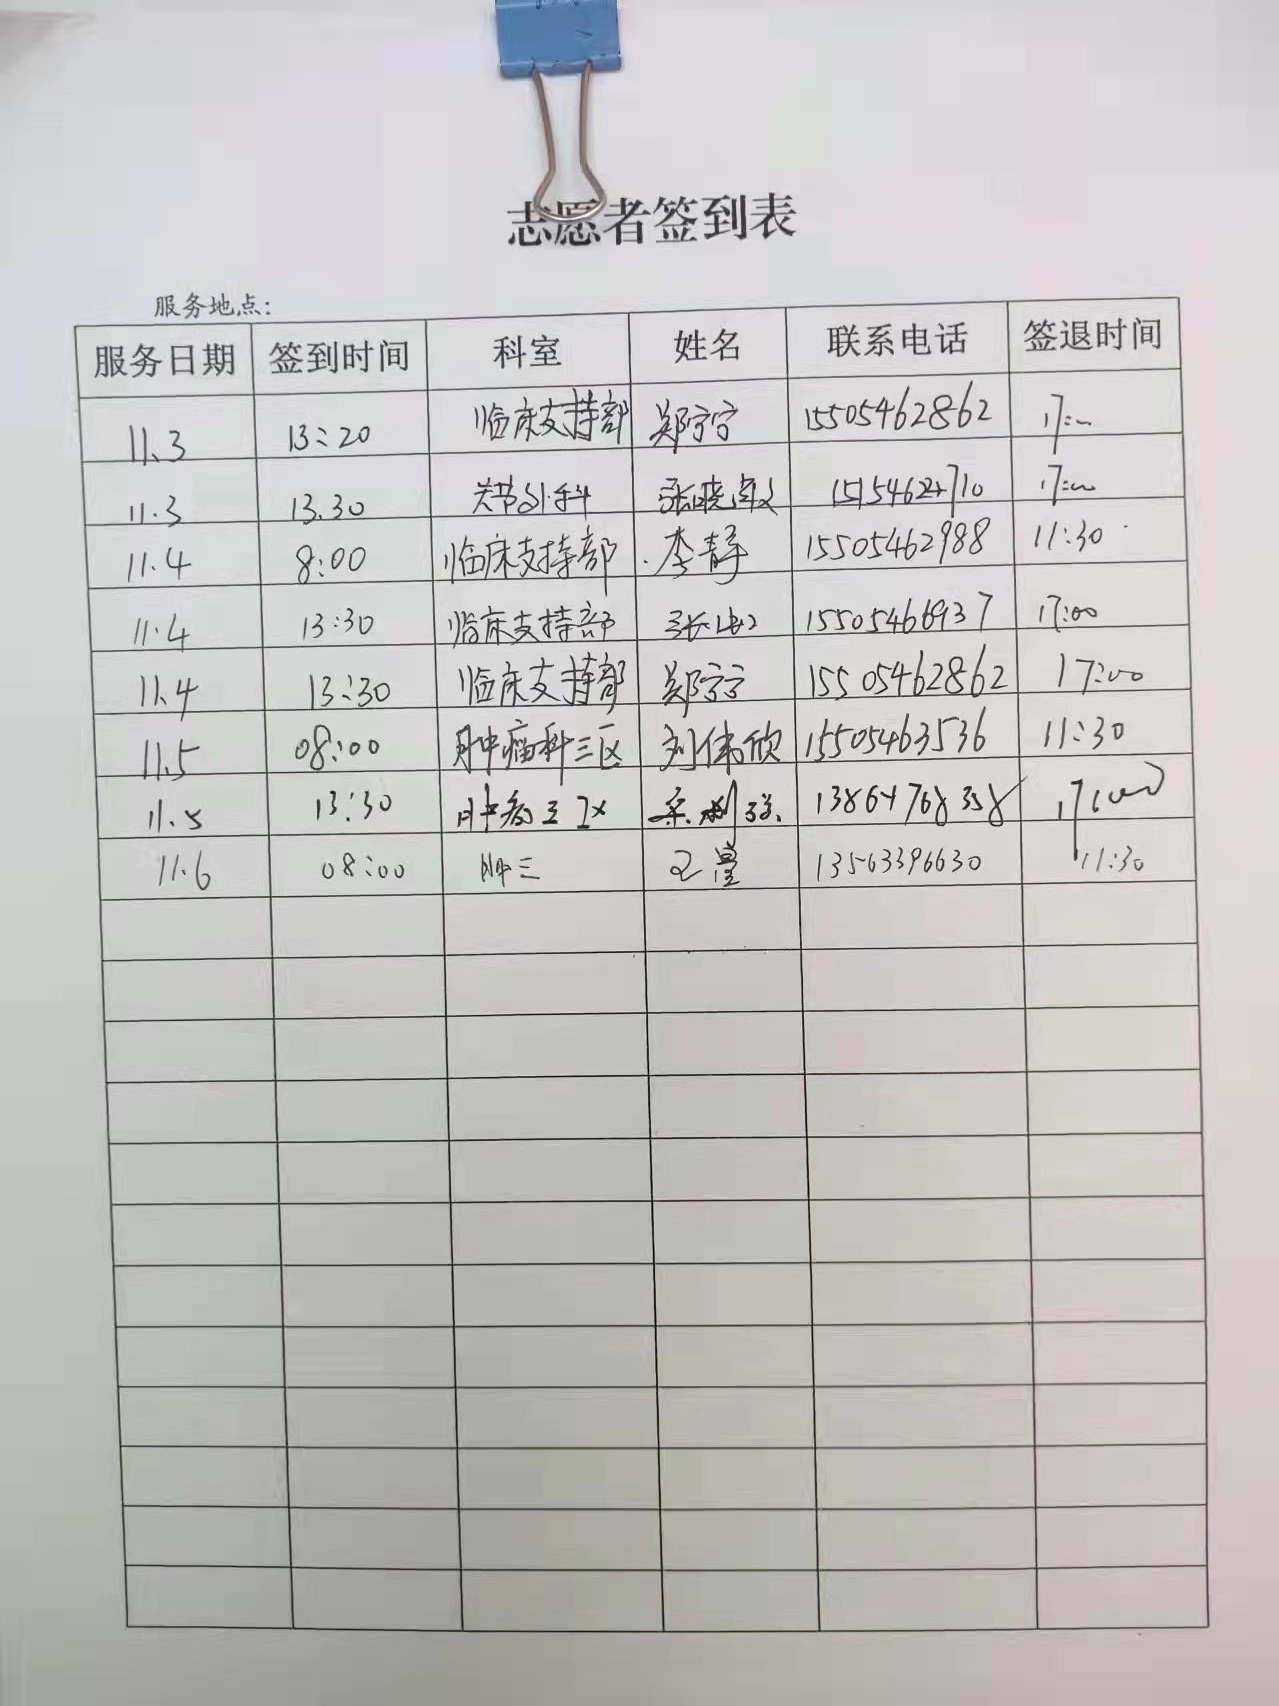 志愿者签到表
服务地点:
服务日期 签到时间 科室 姓名 联系电话 签退时间
11.3 13:20 临床支持部 郑宁宁 15505462862 17:00
11.3 13.30 关节外科 张晓敏 17:00
11.4 8:00 临床支持部 李静 15505462988 11:30
11.4 13:30 临床支持部 15505466937 17:00
11.4 13:30 临床支持部 郑宁宁 15505462862 17:00
11.5 08:00 肿瘤科三区 刘伟欣 15505463536 11:30
11.5 13:30 肿瘤三区 13864768358 17:00
11.6 08:00 肿三 13563396630 11:30